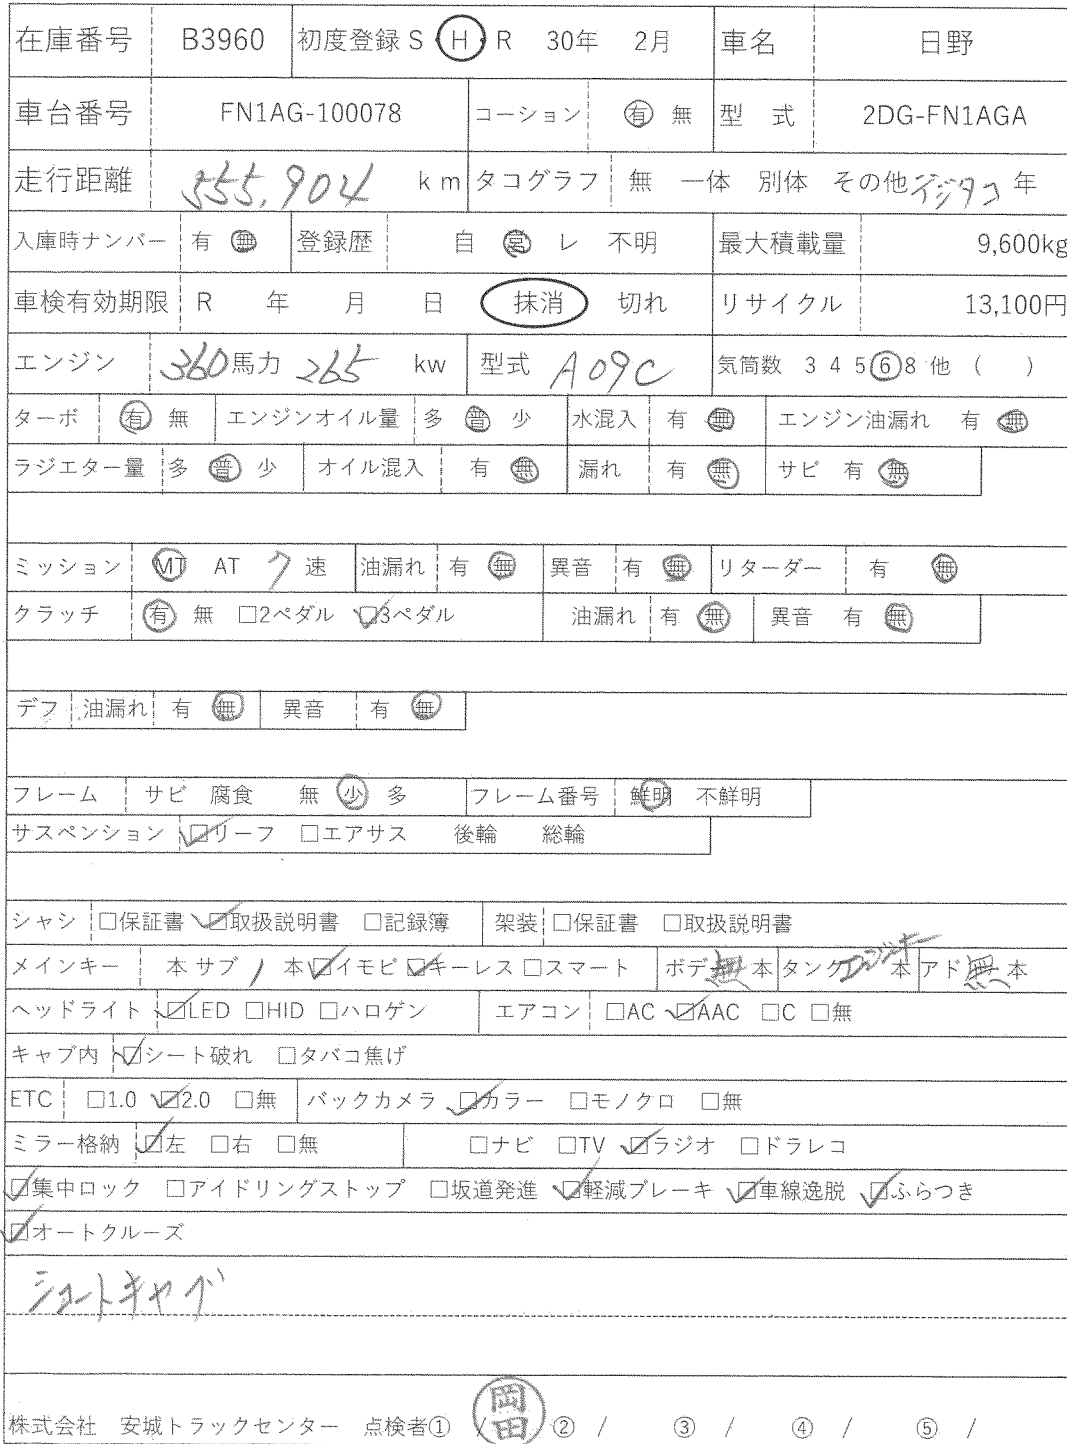 在庫番号 B3960 初度登録 S Ⓗ R 30年 2月 車名 日野
車台番号 FN1AG-100078 コーション 有 無 型 式 2DG-FN1AGA
走行距離 555,904 km タコグラフ 無 一体 別体 その他 デジタコ 年
入庫時ナンバー 有 無 登録歴 自 営 レ 不明 最大積載量 9,600kg
車検有効期限 R 年 月 日 抹消 切れ リサイクル 13,100円
エンジン 360馬力 265 kw 型式 A09C 気筒数 3 4 5 ⑥ 8 他 ( )
ターボ 有 無 エンジンオイル量 多 普 少 水混入 有 無 エンジン油漏れ 有 無
ラジエター量 多 普 少 オイル混入 有 無 漏れ 有 無 サビ 有 無
ミッション MT AT 7 速 油漏れ 有 無 異音 有 無 リターダー 有 無
クラッチ 有 無 □2ペダル ☑3ペダル 油漏れ 有 無 異音 有 無
デフ 油漏れ 有 無 異音 有 無
フレーム サビ 腐食 無 少 多 フレーム番号 鮮明 不鮮明
サスペンション ☑リーフ □エアサス 後輪 総輪
シャシ □保証書 ☑取扱説明書 □記録簿 架装 □保証書 □取扱説明書
メインキー 本 サブ 1 本 ☑イモビ ☑キーレス □スマート ボデー 無 本 タンク エンジンキー 本 アド 無 本
ヘッドライト ☑LED □HID □ハロゲン エアコン □AC ☑AAC □C □無
キャブ内 ☑シート破れ □タバコ焦げ
ETC □1.0 ☑2.0 □無 バックカメラ ☑カラー □モノクロ □無
ミラー格納 ☑左 □右 □無 □ナビ □TV ☑ラジオ □ドラレコ
☑集中ロック □アイドリングストップ □坂道発進 ☑軽減ブレーキ ☑車線逸脱 ☑ふらつき
☑オートクルーズ
ショートキャブ
株式会社 安城トラックセンター 点検者① / 岡田 ② / ③ / ④ / ⑤ /